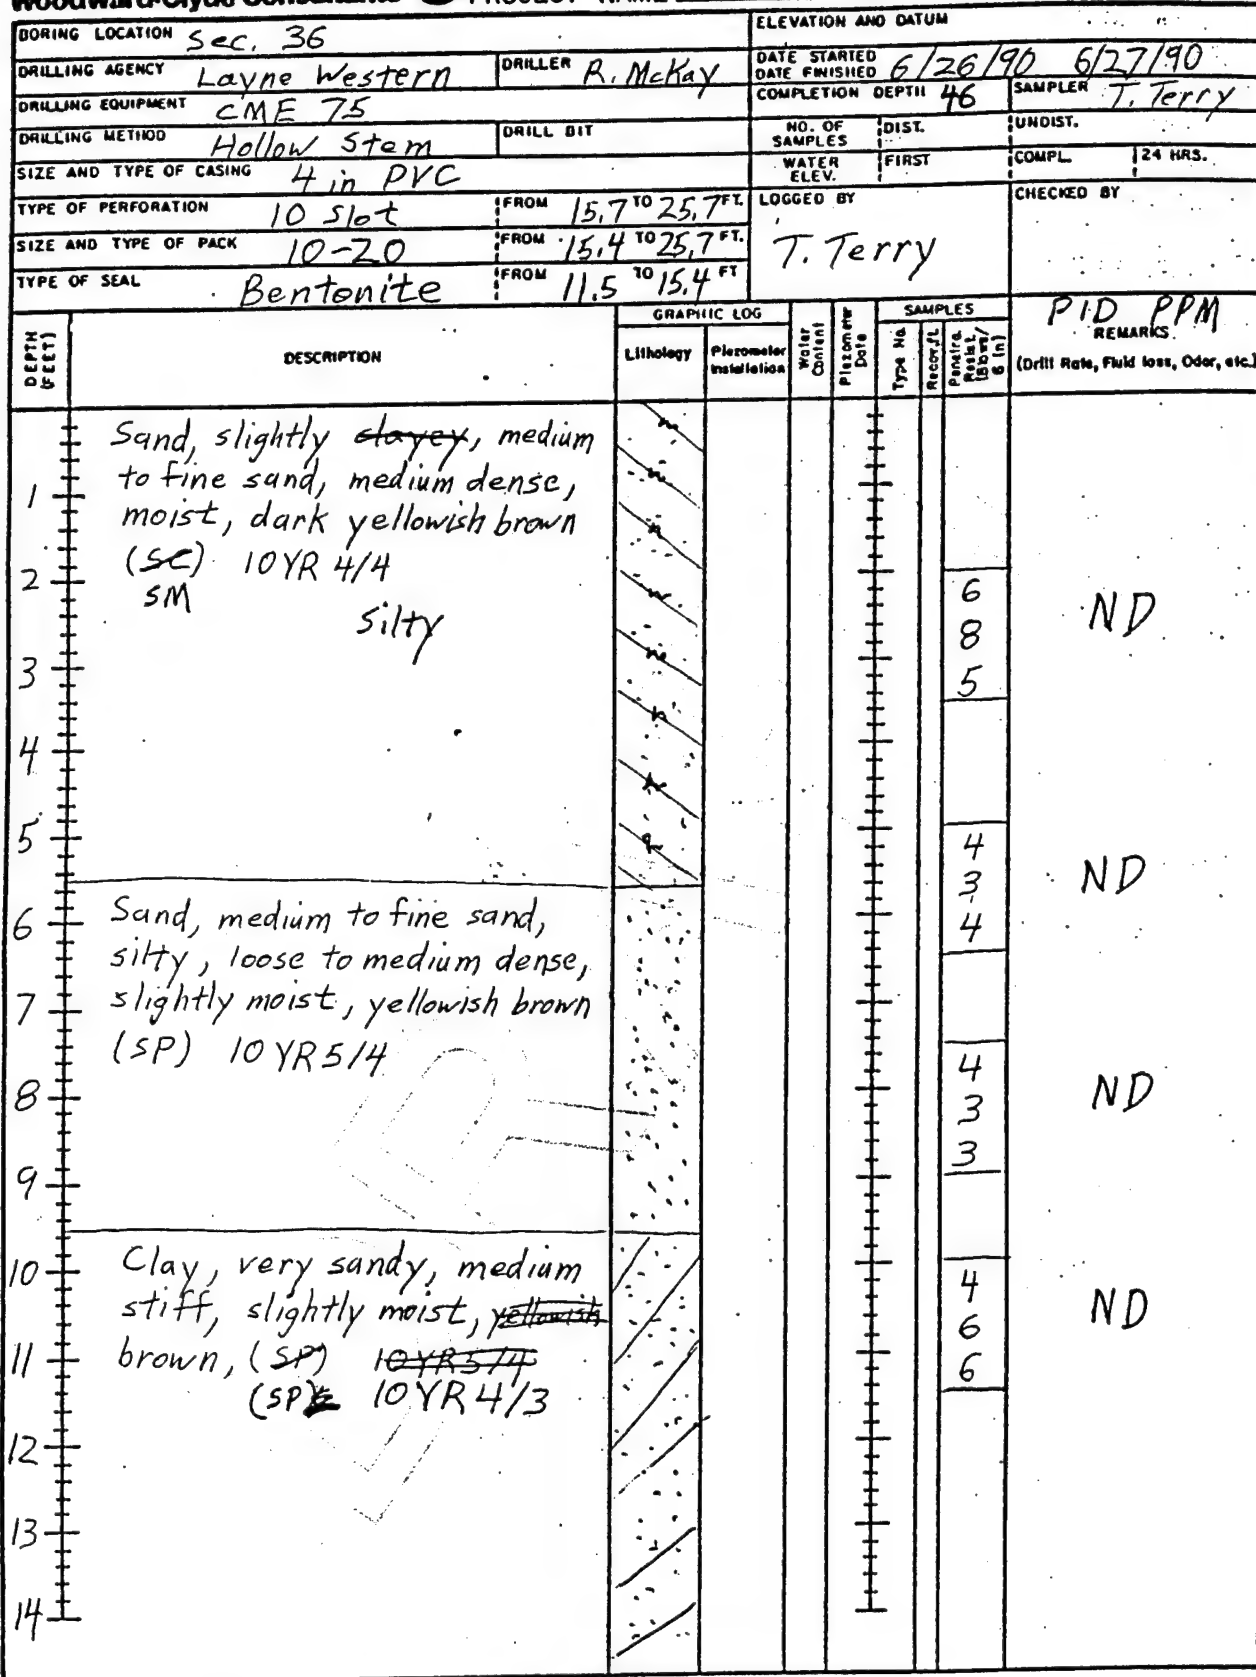 Woodward-Clyde Consultants PROJECT NAME
BORING LOCATION Sec. 36 ELEVATION AND DATUM
DRILLING AGENCY Layne Western DRILLER R. McKay DATE STARTED 6/26/90 6/27/90
DATE FINISHED
DRILLING EQUIPMENT CME 75 COMPLETION DEPTH 46 SAMPLER T. Terry
DRILLING METHOD Hollow Stem DRILL BIT NO. OF SAMPLES DIST. UNDIST.
SIZE AND TYPE OF CASING 4 in PVC WATER ELEV. FIRST COMPL. 24 HRS.
TYPE OF PERFORATION 10 slot FROM 15.7 TO 25.7 FT. LOGGED BY CHECKED BY
SIZE AND TYPE OF PACK 10-20 FROM 15.4 TO 25.7 FT. T. Terry
TYPE OF SEAL Bentonite FROM 11.5 TO 15.4 FT
DEPTH (FEET) DESCRIPTION GRAPHIC LOG Lithology Piezometer Installation Water Content Piezometer Date SAMPLES Type No. Recov. ft. Penetra. Resist. (Blows/ 6 in) PID PPM
REMARKS
(Drill Rate, Fluid loss, Odor, etc.)
Sand, slightly clayey, medium
to fine sand, medium dense,
1 moist, dark yellowish brown
(SC) 10YR 4/4
2 SM 6 ND
silty 8
3 5
4
5 4 ND
3
6 Sand, medium to fine sand, 4
silty, loose to medium dense,
7 slightly moist, yellowish brown
(SP) 10YR5/4 4
8 3 ND
9 3
10 Clay, very sandy, medium 4
stiff, slightly moist, yellowish 6 ND
11 brown, (SP) 10YR5/4 6
(SP) 10YR4/3
12
13
14